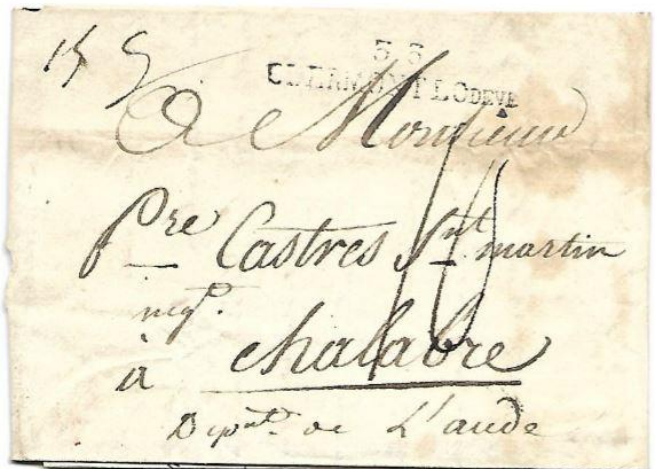 33
CLERMONT LODEVE
à Monsieur
Pre Castres St martin
negt.
à chalabre
Dépnt. de L'aude